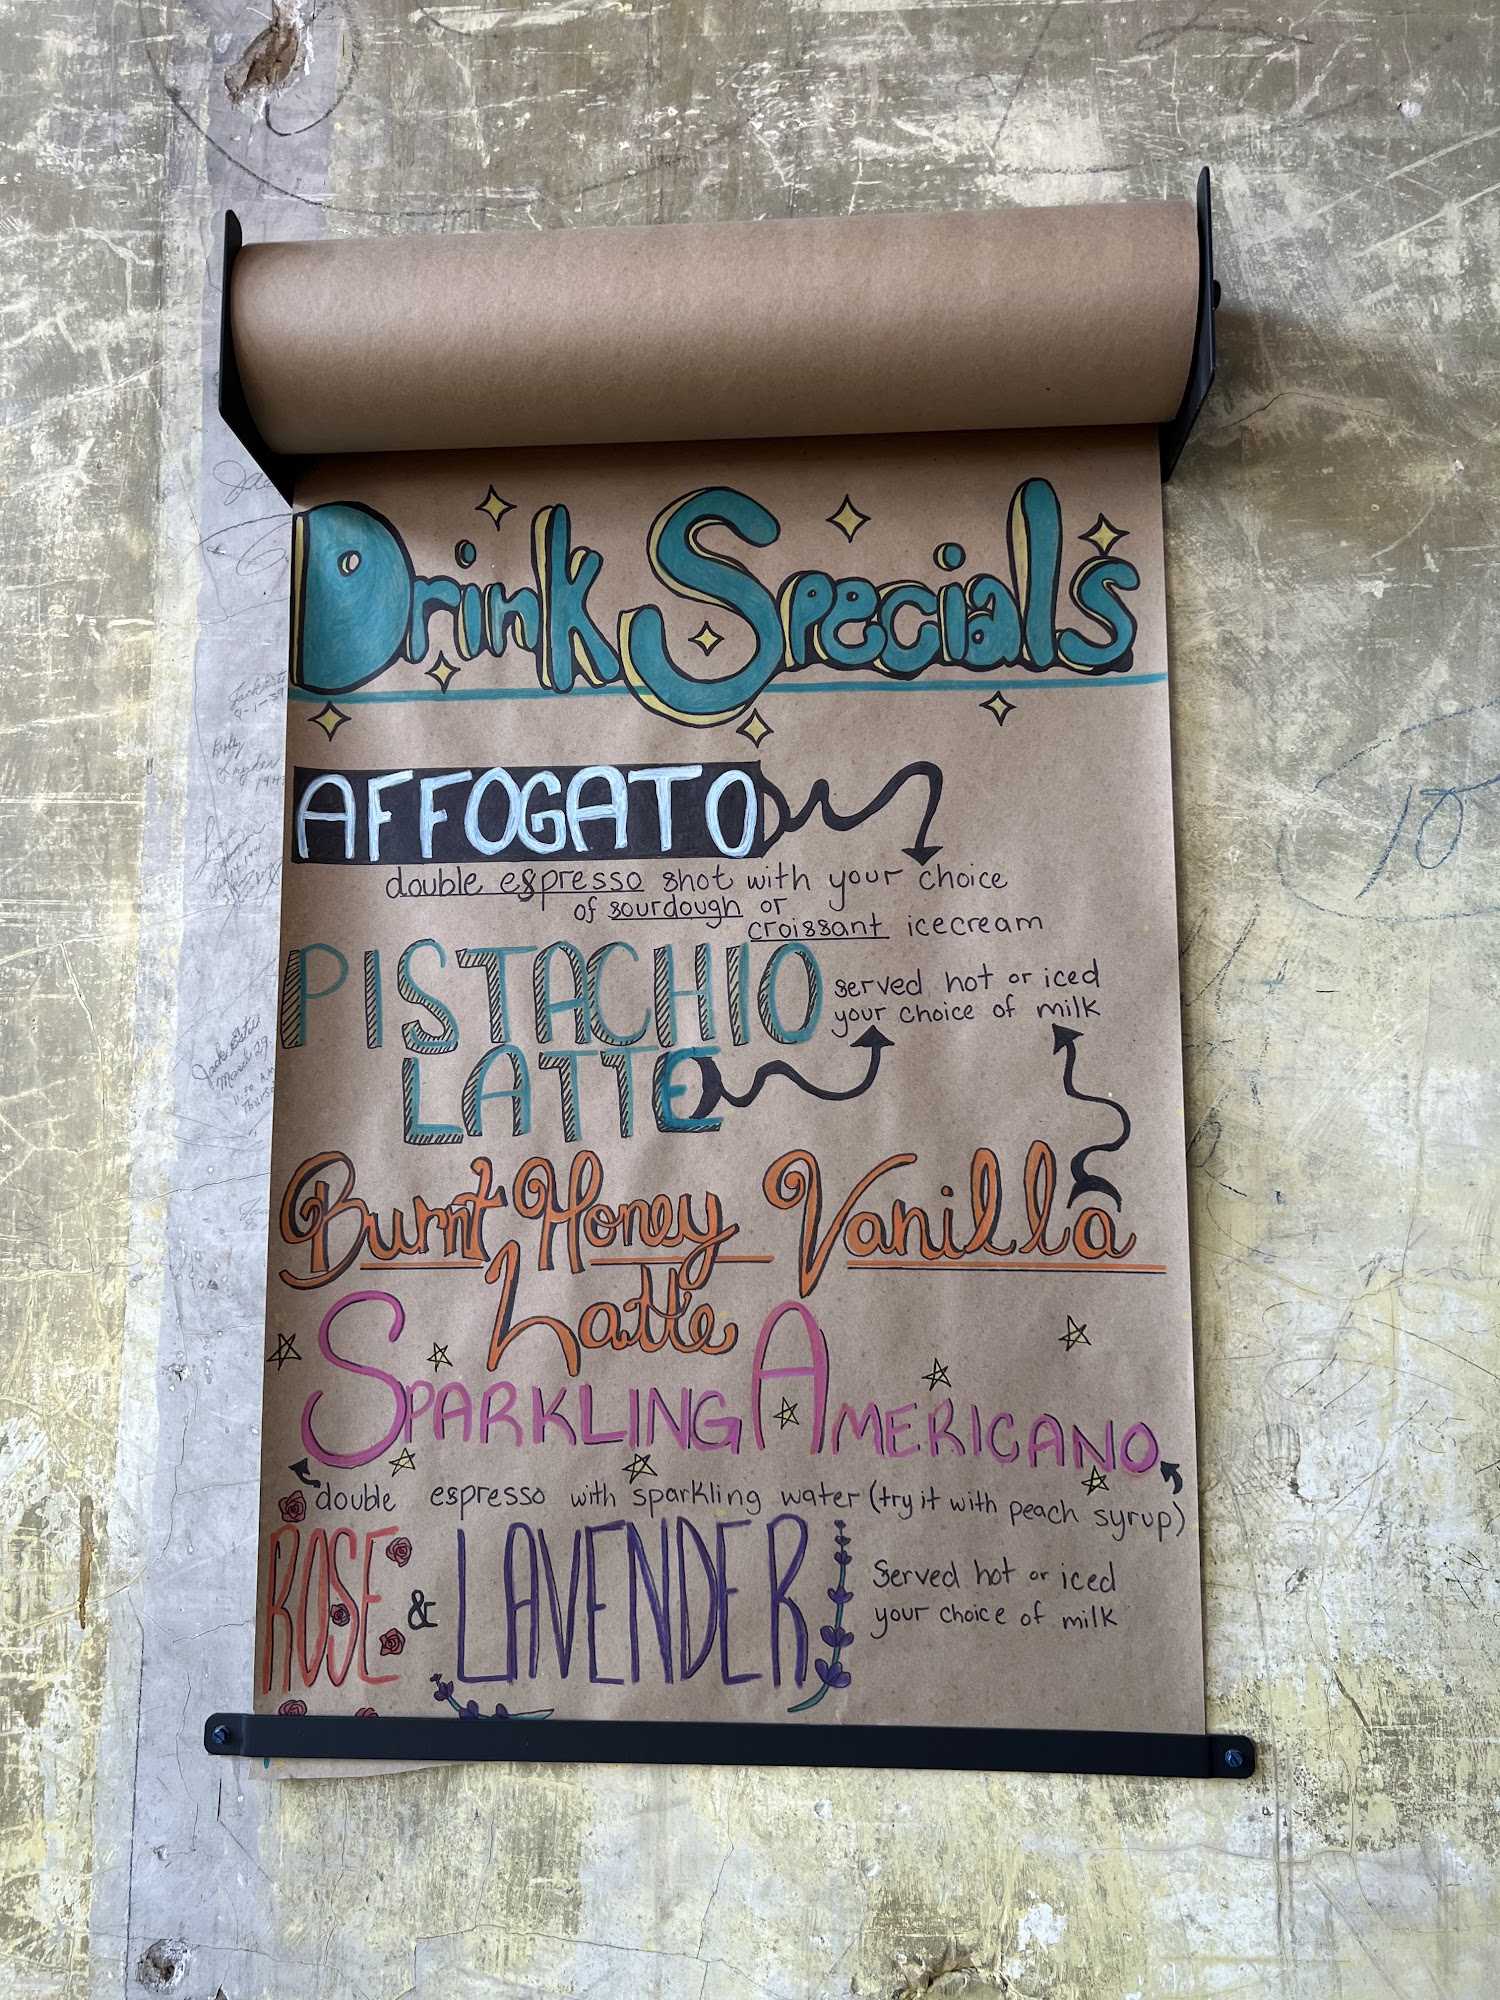 Drink Specials
AFFOGATO
double espresso shot with your choice
of sourdough or
croissant icecream
PISTACHIO
LATTE
served hot or iced
your choice of milk
Burnt Honey Vanilla
Latte
SPARKLING AMERICANO
double espresso with sparkling water (try it with peach syrup)
ROSE & LAVENDER
served hot or iced
your choice of milk
Jack Estes
March 29
10